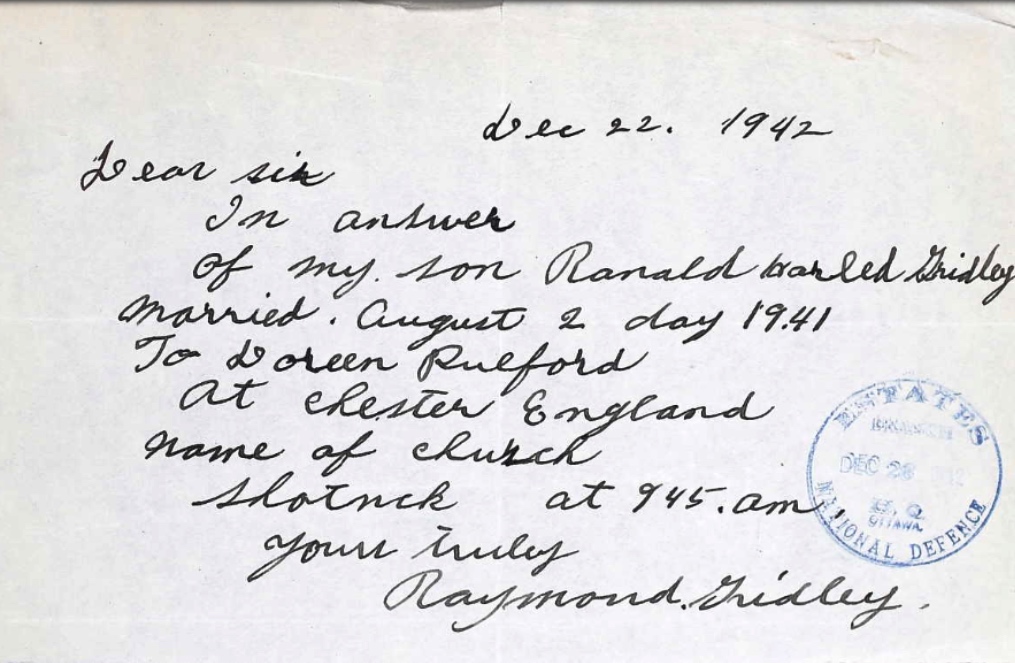 Dec 22. 1942
Dear sir
In answer
of my son Ranald Harled Gridley
Married. August 2 day 1941
To Doreen Pulford
At Chester England
Name of church
Shotnck at 945.am.
yours truly
Raymond. Gridley.
ESTATES
BRANCH
DEC 28 1942
H.Q
OTTAWA
NATIONAL DEFENCE